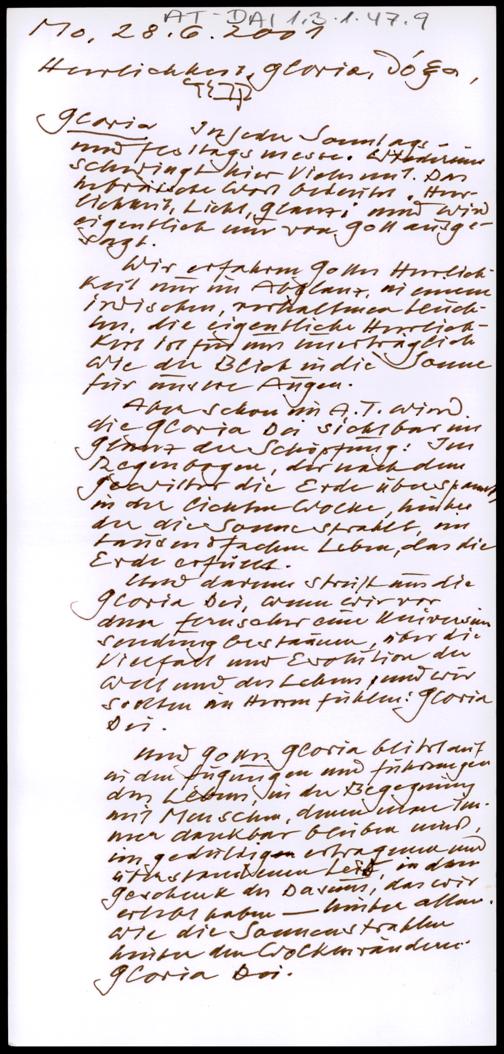 AT-DAI 1.3.1.47.9
Mo, 28.6.2001
Herrlichkeit, Gloria, Dóξa,
Gloria In jeder Sonntags-
und Festtagsmesse.
schwingt hier Vieles mit. Das
hebräische Wort bedeutet: Herr-
lichkeit, Licht, Glanz; und wird
eigentlich nur von Gott ausge-
sagt.
Wir erfahren Gottes Herrlich-
keit nur im Abglanz, in einem
irdischen, verhaltenen Leuch-
ten, die eigentliche Herrlich-
keit ist für uns unerträglich
wie der Blick in die Sonne
für unsere Augen.
Aber schon im A.T. wird
die Gloria Dei sichtbar im
Glanz der Schöpfung: Im
Regenbogen, der nach dem
Gewitter die Erde überspannt,
in der lichten Wolke, hinter
der die Sonne strahlt, im
tausendfachen Leben, das die
Erde erfüllt.
Und darum streift uns die
Gloria Dei, wenn wir vor
dem Fernseher eine Universum
sendung bestaunen, über die
Vielfalt und Evolution der
Welt und des Lebens, und wir
sollten im Herzen fühlen: Gloria
Dei.
Und Gottes Gloria blitzt auf
in den Fügungen und Führungen
des Lebens, in der Begegnung
mit Menschen, denen man im-
mer dankbar bleiben wird,
im geduldigen ertragenen und
überstandenen Leid, in dem
Geschenk des Daseins, das wir
erlebt haben – hinter allem.
wie die Sonnenstrahlen
hinter den Wolkenrändern.
Gloria Dei.